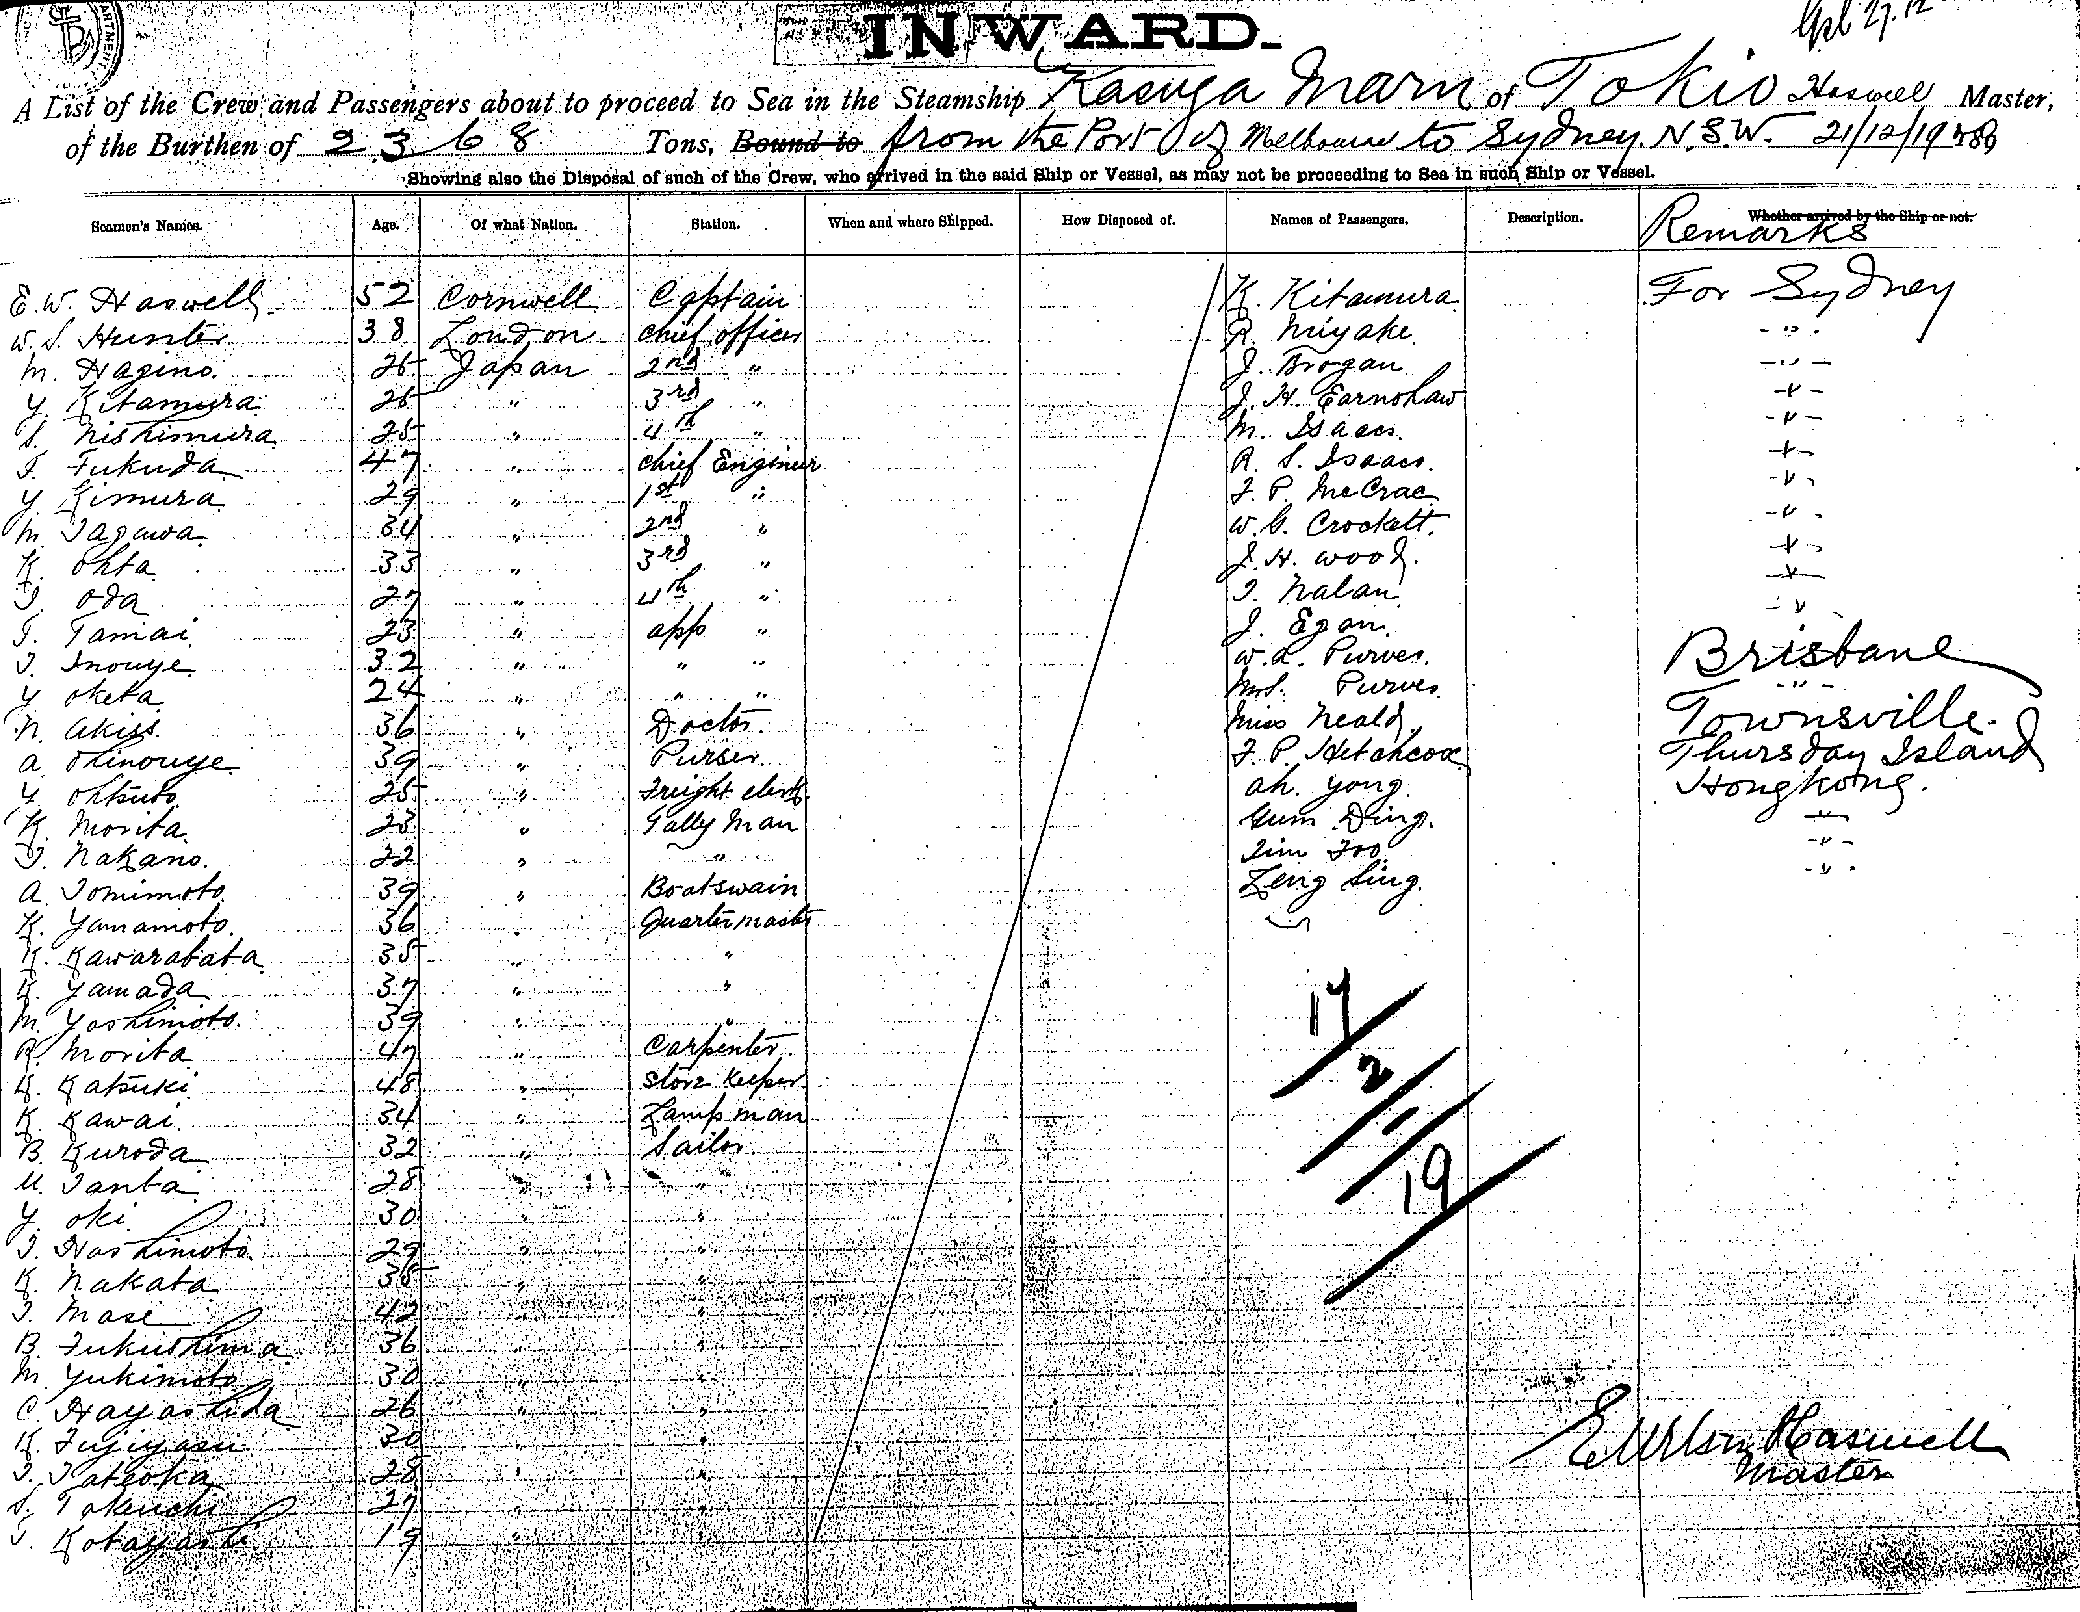 INWARD.
A List of the Crew and Passengers about to proceed to Sea in the Steamship Kasuga Maru of Tokio Haswell Master,
of the Burthen of 2368 Tons, Bound to from the Port of Melbourne to Sydney. N.S.W. 21/12/19
Showing also the Disposal of such of the Crew, who arrived in the said Ship or Vessel, as may not be proceeding to Sea in such Ship or Vessel.
Seamen's Names. Age. Of what Nation. Station. When and where Shipped. How Disposed of. Names of Passengers. Description. Whether arrived by the Ship or not.
Remarks
E. W. Haswell 52 Cornwell Captain K. Kitamura For Sydney
W. S. Hunter 38 London Chief officer R. Miyake - " -
M. Hagino. 25 Japan 2nd " J. Brogan - " -
Y. Kitamura 25 " 3rd " J. H. Earnshaw - " -
S. Nishimura 25 " 4th " M. Isaacs. - " -
T. Fukuda 47 " Chief Engineer R. S. Isaacs. - " -
Y. Kimura 29 " 1st " F. P. McCrae - " -
M. Tagawa. 34 " 2nd " W. G. Crockett. - " -
K. Ohta 33 " 3rd " J. H. Wood. - " -
T. Oda 27 " 4th " T. Nalan - " -
T. Tamai. 23 " app " J. Egan. - " -
T. Inouye 32 " " " W. L. Purves. Brisbane
Y. Oketa 24 " " " Mrs. Purves. - " -
N. 36 " Doctor. Miss Neald, Townsville.
A. Okinouye 39 " Purser. F. P. Hitchcock Thursday Island
Y. 25 " Freight clerk. Ah. Yong. Hongkong.
K. Morita 23 " Tally Man Gum Ding. - " -
T. Nakano. 22 " " Tim Foo - " -
A. Tomimoto 39 " Boatswain Leng Sing. - " -
K. Yamamoto. 36 " Quartermaster
K. Kawarabata 35 " "
K. Yamada 37 " "
M. Yoshimoto. 39 " "
R. Morita 47 " Carpenter.
K. Katsuki 48 " Store Keeper
K. Kawai. 34 " Lamp man
B. Kuroda 32 " Sailor
U. Tanba 28 " "
Y. Oki 30 " "
T. Hashimoto. 29 " "
K. Nakata 35 " "
T. Mase 42 " "
B. Fukushima 36 " "
M. Yukimoto 30 " "
C. Hayashida 26 " "
K. Fujiyasu 30 " "
T. Tateoka 28 " "
S. Takeuchi 27 " "
T. Kobayashi 19 "
17
2
1
19
Haswell
Master